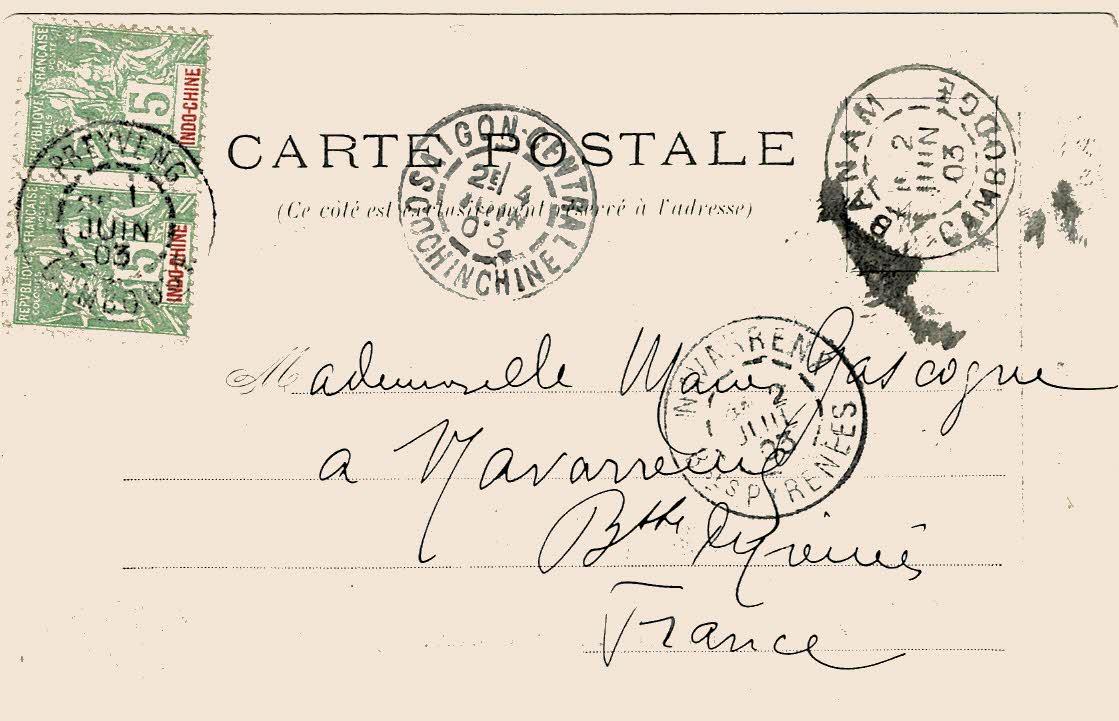 REPVBLIQVE FRANÇAISE
COLONIES POSTES
5
INDO-CHINE
REPVBLIQVE
COLONIES
5
INDO-CHINE
PREYVENG
1
JUIN
03
CARTE POSTALE
(Ce côté est exclusivement réservé à l'adresse)
SAIGON-CENTRAL
2E 4
JUIN
03
COCHINCHINE
BANAM
2
JUIN
03
CAMBODGE
Mademoiselle Marie Gascogne
à Navarrenx
Bsses Pyrénées
France
NAVARRENX
2
JUIL
03
BSES PYRENEES